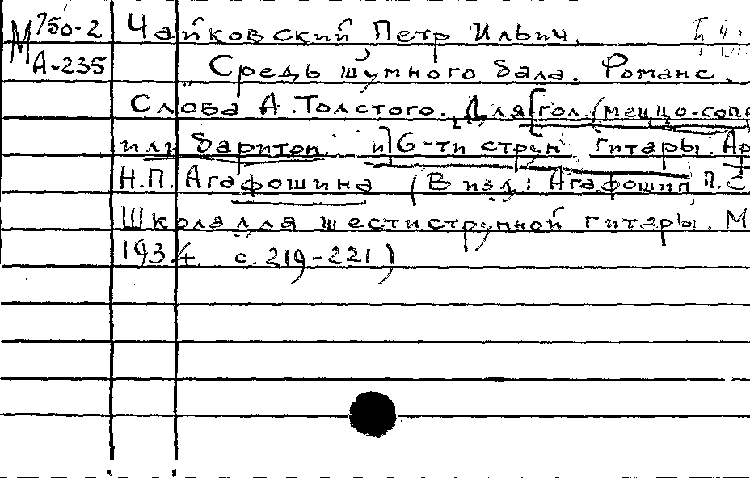 М 750-2 Чайковский Петр Ильич.
А-235 Средь шумного бала. Романс.
Слова А.Толстого. Для [гол. (меццо-соп
или баритон и] 6-ти струн гитары. Ар
Н.П. Агафошина (В изд: Агафошин П.С
Школа для шестиструнной гитары. М
1934 с. 219-221)